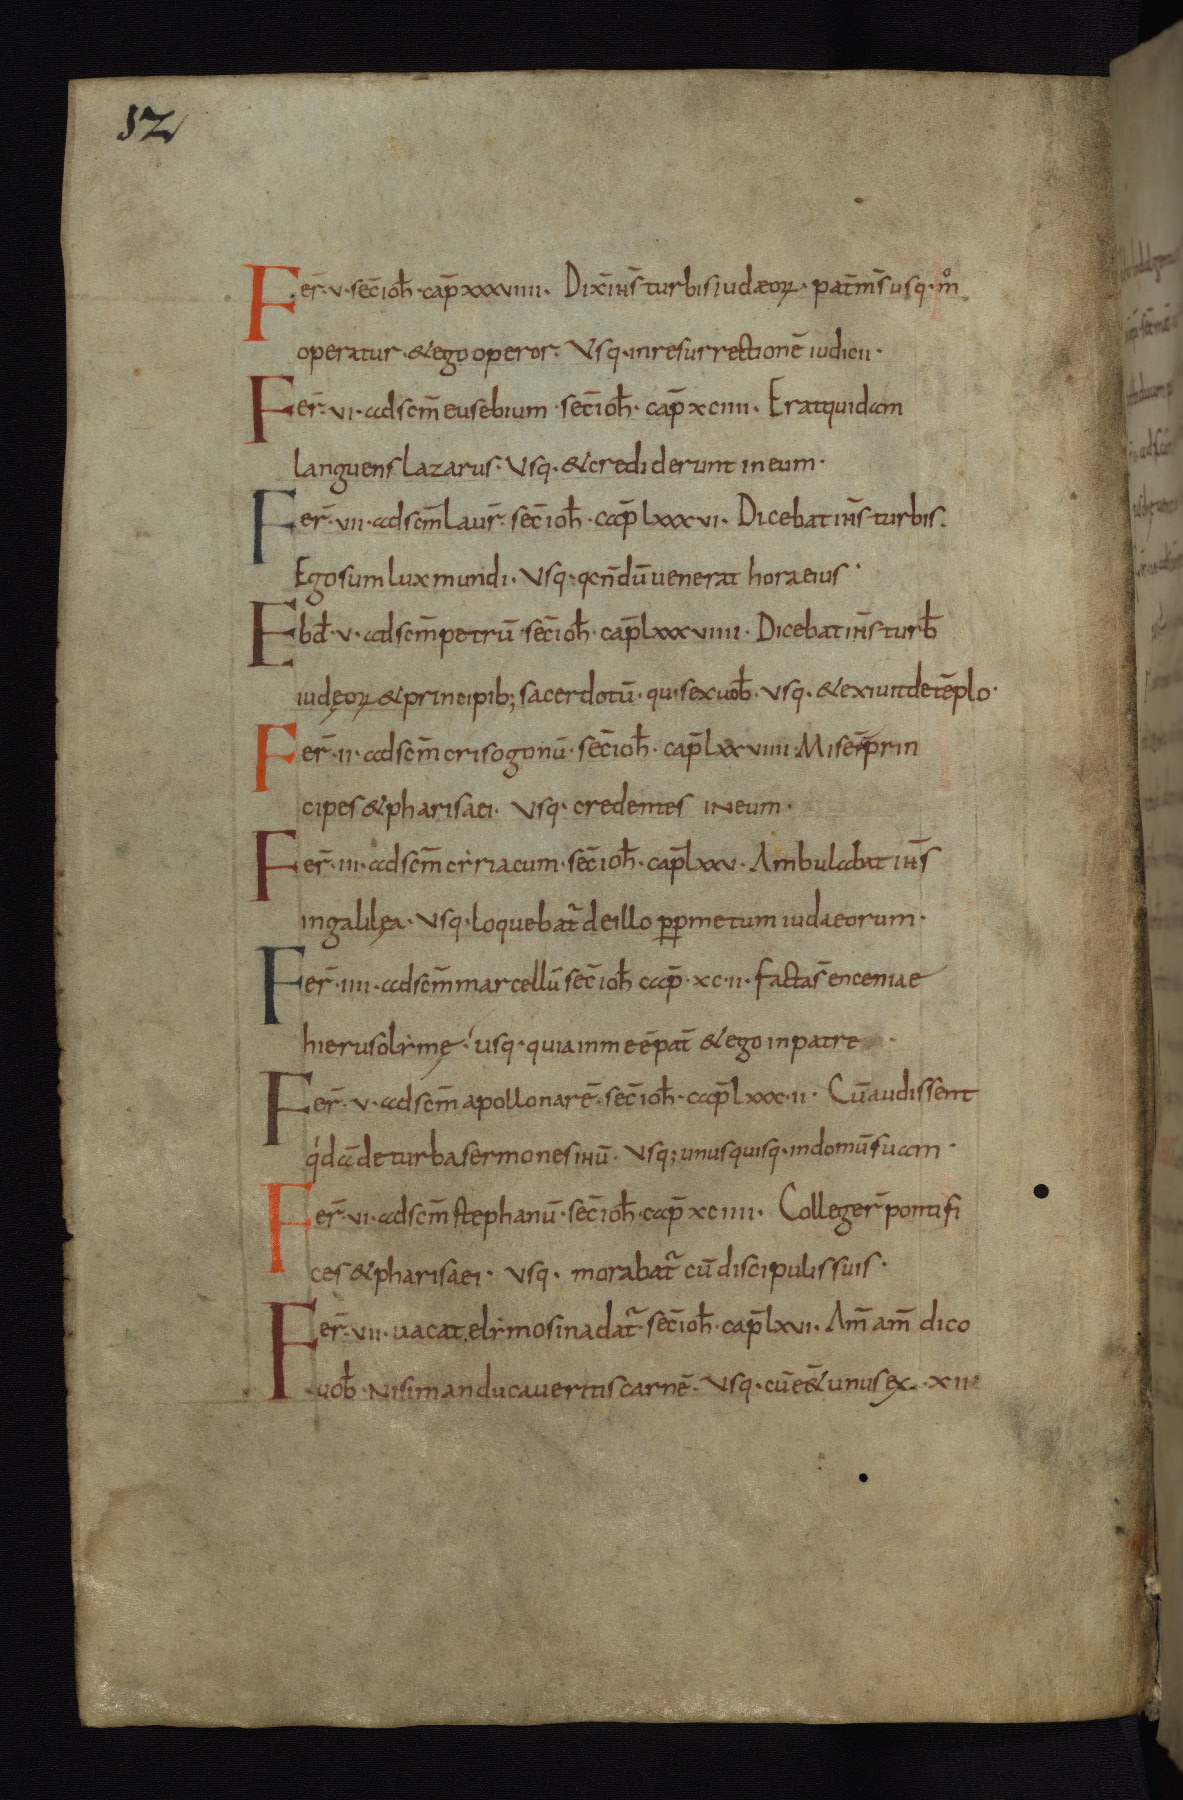 52
Fer̄· v· sec̄ ioh̄· cap̄ xxxviiii· Dix̄ ih̄s turbis iudæoꝝ· pat̄ m̄s usq· m̊
operatur· & ego operor· Usq· in resurrectionē iudicii·
Fer̄· vi· ad sc̄m eusebium· sec̄ ioh̄· cap̄ xciiii· Erat quidam
languens lazarus· Usq· & crediderunt in eum·
Fer̄· vii· ad sc̄m laur̄· sec̄ ioh̄· cap̄ lxxxvi· Dicebat ih̄s turbis·
Ego sum lux mundi· Usq· q̄ nōdū uenerat hora eius·
Ebd̄· v· ad sc̄m petrū· sec̄ ioh̄· cap̄ lxxxviiii· Dicebat ih̄s turb̄
iudęoꝝ & principib; sacerdotū· quis ex uob̄· usq· & exiuit de tēplo·
Fer̄· ii· ad sc̄m crisogonū· sec̄ ioh̄· cap̄ lxxviiii· Miser̄ prin
cipes & pharisaei· usq· credentes in eum·
Fer̄· iii· ad sc̄m cẏriacum· sec̄ ioh̄· cap̄ lxxv· Ambulabat ih̄s
in galilęa· Usq· loquebat̄ de illo ꝓp metum iudaeorum·
Fer̄· iiii· ad sc̄m marcellū sec̄ ioh̄ cap̄· xc·ii· facta s̄ enceniae
hierusolẏmę· usq· quia in me ē pat̄ & ego in patre·
Fer̄· v· ad sc̄m apollonarē· sec̄ ioh̄· cap̄ lxxx·ii· Cū audissent
q'dā de turba sermones ihū· Usq; unusquisq· in domū suam·
Fer̄· vi· ad sc̄m stephanū· sec̄ ioh̄· cap̄ xciiii· Colleger̄ pontifi
ces & pharisaei· usq· morabat̄ cū discipulis suis·
Fer̄· vii· uacat, elẏmosina dat̄· sec̄ ioh̄· cap̄ lxvi· Am̄ am̄ dico
uob̄· nisi manducaueritis carnē· Usq· cū eēt unus ex· xii·